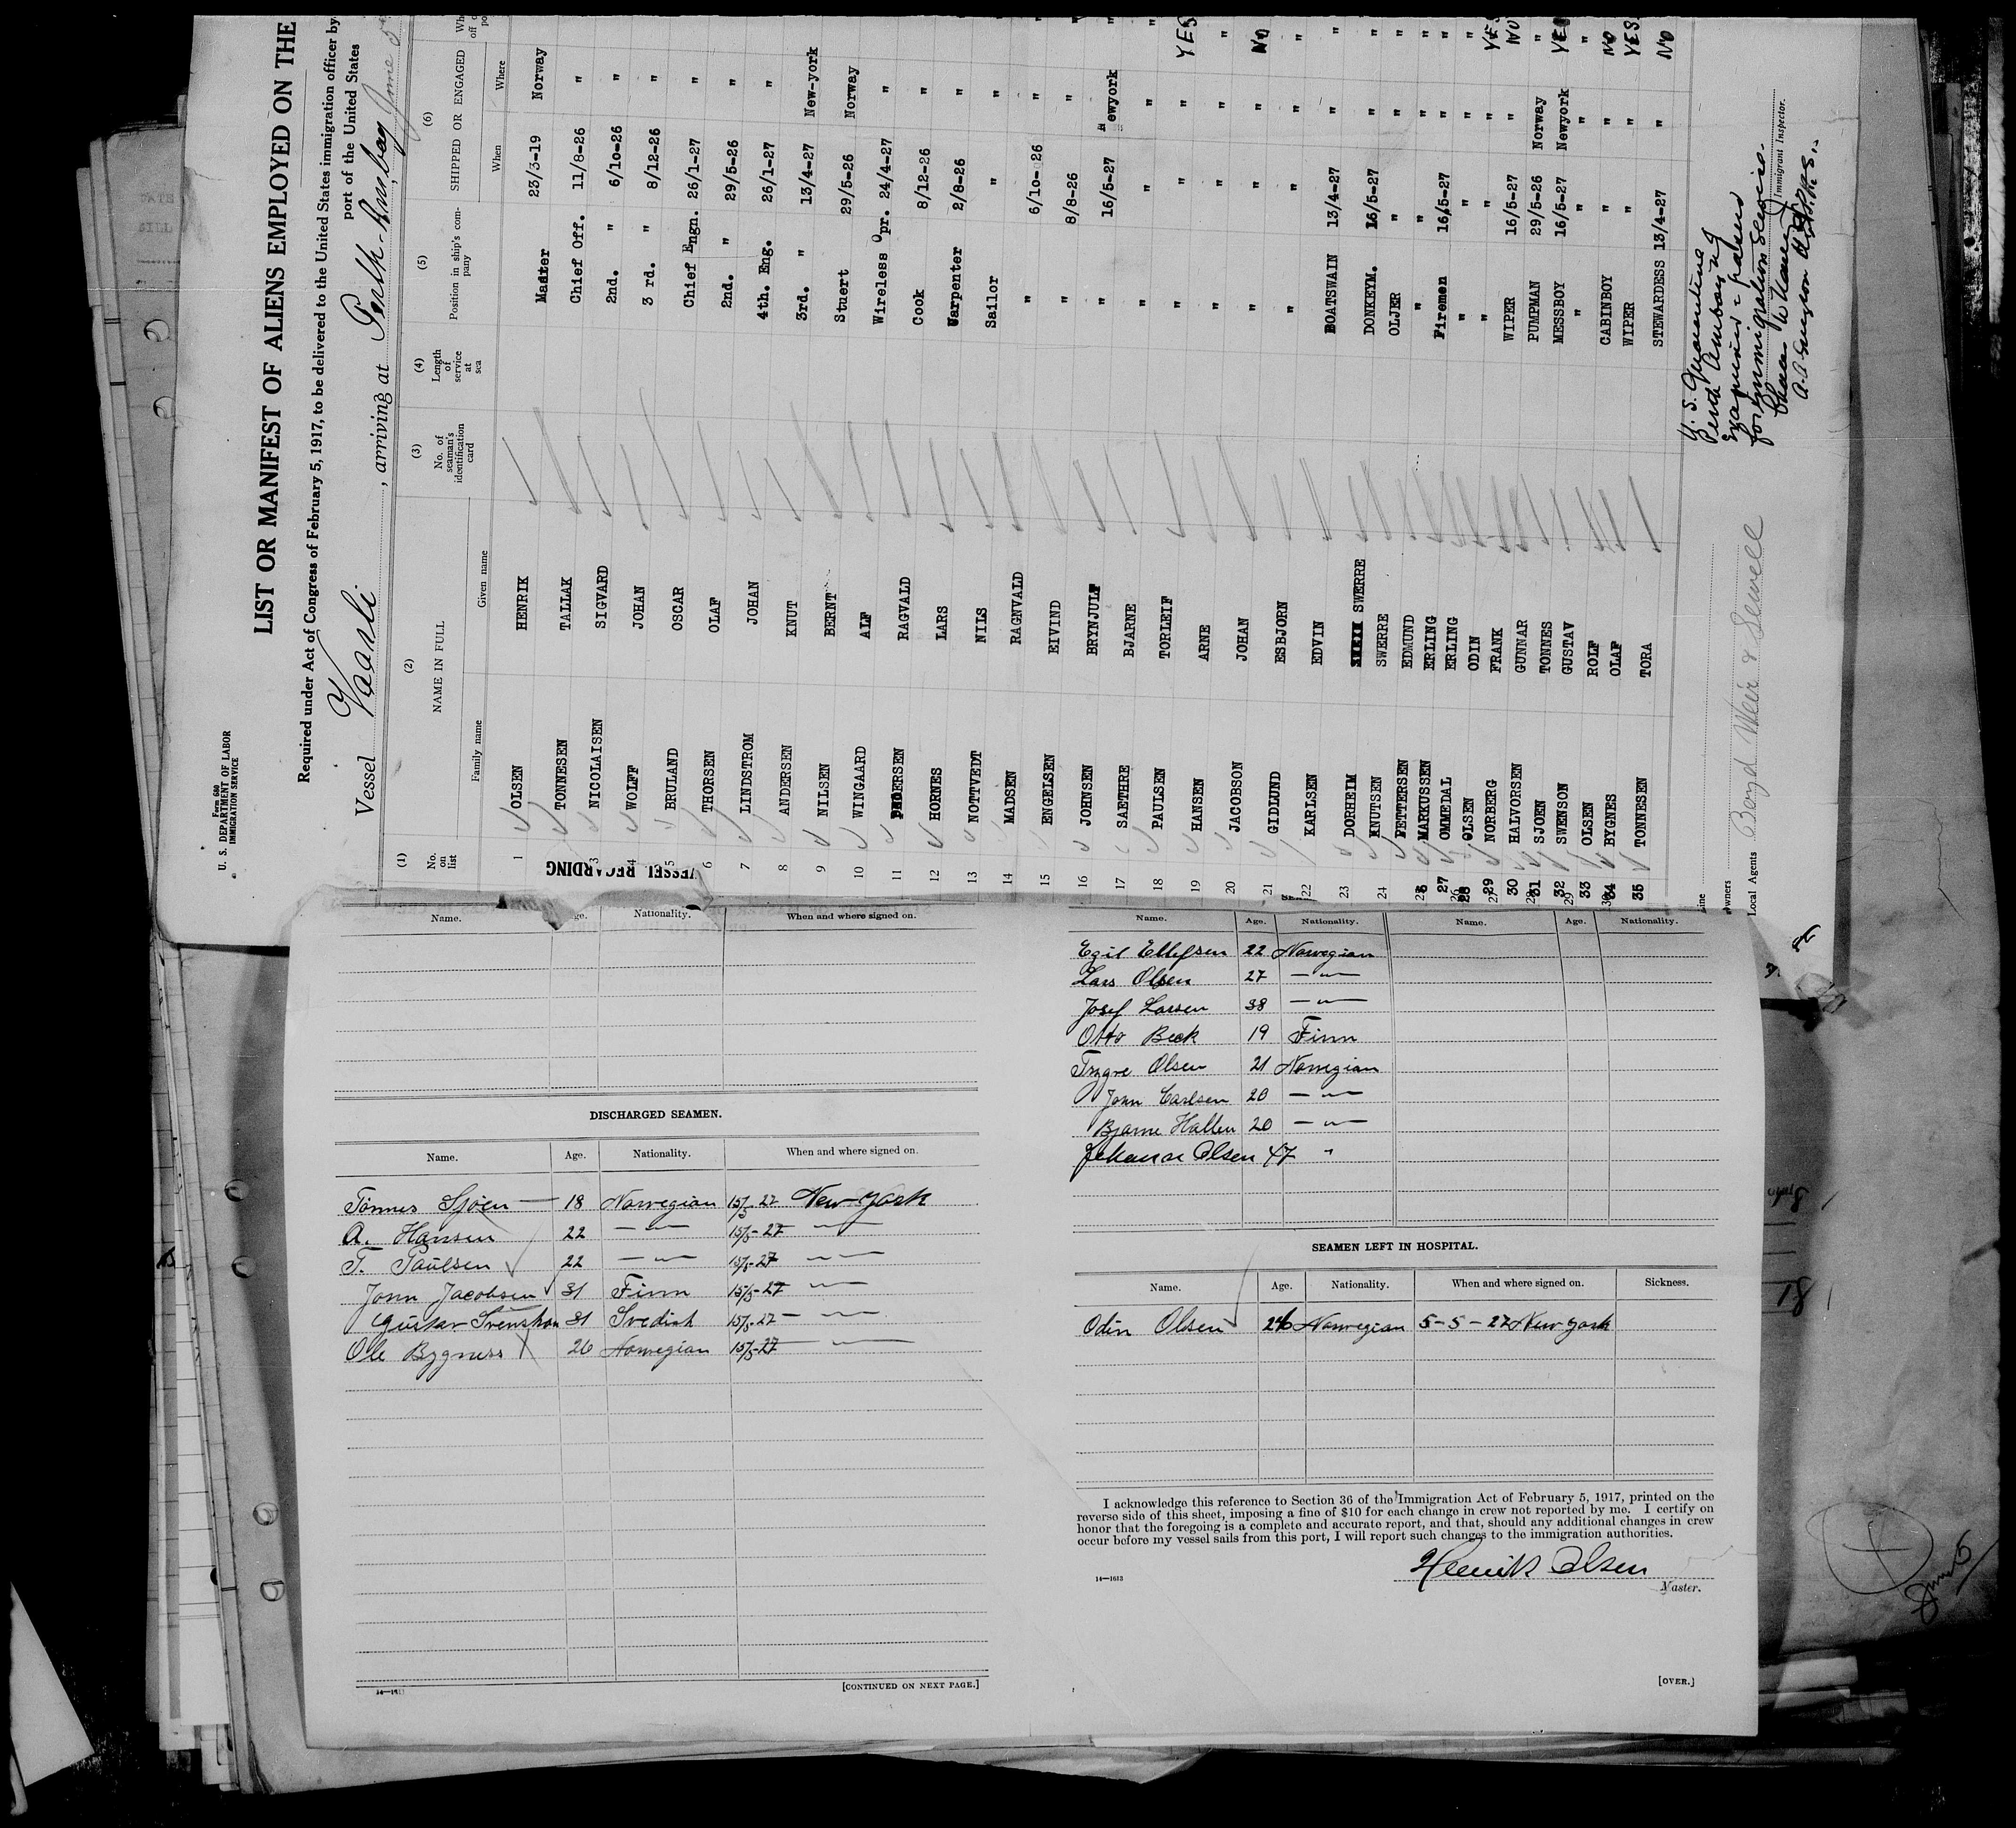 Form 680
U. S. DEPARTMENT OF LABOR
IMMIGRATION SERVICE
LIST OR MANIFEST OF ALIENS EMPLOYED ON THE
Required under Act of Congress of February 5, 1917, to be delivered to the United States immigration officer by
port of the United States
Vessel Vaarli, arriving at Perth-Amboy June 5
(1) (2) (3) (4) (5) (6)
No. on list NAME IN FULL No. of seaman's identification card Length of service at sea Position in ship's company SHIPPED OR ENGAGED
Family name Given name When Where
1 OLSEN HENRIK Master 23/3-19 Norway
TONNESEN TALLAK Chief Off. 11/8-26 "
3 NICOLAISEN SIGVARD 2nd. " 6/10-26 "
4 WOLFF JOHAN 3 rd. " 8/12-26 "
5 BRULAND OSCAR Chief Engn. 26/1-27 "
6 THORSEN OLAF 2nd. " 29/5-26 "
7 LINDSTROM JOHAN 4th. Eng. 26/1-27 "
8 ANDERSEN KNUT 3rd. " 13/4-27 New-york
9 NILSEN BERNT Stuert 29/5-26 Norway
10 WINGAARD ALF Wireless Opr. 24/4-27 "
11 RAGVALD Cook 8/12-26 "
12 HORNES LARS Carpenter 2/8-26 "
13 NOTTVEDT NILS Sailor " "
14 MADSEN RAGNVALD " 6/10-26 "
15 ENGELSEN EIVIND " 8/8-26 "
16 JOHNSEN BRYNJULF " 16/5-27 Newyork "
17 SAETHRE BJARNE " " " "
18 PAULSEN TORLEIF " " " YES
19 HANSEN ARNE " " " "
20 JACOBSON JOHAN " " " NO
21 GIDLUND ESBJORN " " " "
22 KARLSEN EDVIN BOATSWAIN 13/4-27 " "
23 DORHEIM SWERRE DONKEYM. 16/5-27 " "
24 KNUTSEN SWERRE OLJER " " "
PETTERSEN EDMUND " " " "
MARKUSSEN ERLING Firemen 16/5-27 " "
27 OMMEDAL ERLING " " " "
28 OLSEN ODIN " " " YES
29 NORBERG FRANK WIPER 16/5-27 " NO
30 HALVORSEN GUNNAR PUMPMAN 29/5-26 Norway "
31 SJOEN TONNES MESSBOY 16/5-27 Newyork YES
32 SWENSON GUSTAV " " " "
33 OLSEN ROLF CABINBOY " " NO
34 BYGNES OLAF WIPER " " YES
35 TONNESEN TORA STEWARDESS 13/4-27 " NO
Line
Owners
Local Agents Boyd Weir & Sewell
U. S. Quarantine
Perth Amboy NJ
Examined & passed
for Immigration Service.
Immigrant Inspector.
VESSEL REGARDING
Name. Age. Nationality. When and where signed on.
DISCHARGED SEAMEN.
Name. Age. Nationality. When and where signed on.
Tönnes Sjöen 18 Norwegian 15/5-27 New-York
A. Hansen 22 — " — 15/5-27 — " —
T. Paulsen 22 — " — 15/5-27 — " —
John Jacobsen 31 Finn 15/5-27 — " —
Gustav Svenshon 31 Svedish 15/5-27 — " —
Ole Bygness 26 Norwegian 15/5-27 — " —
14—1613
[CONTINUED ON NEXT PAGE.]
Name. Age. Nationality. Name. Age. Nationality.
Egil Ellefsen 22 Norwegian
Lars Olsen 27 — " —
Josef Larsen 38 — " —
Otto Beck 19 Finn
Trygve Olsen 21 Norwegian
John Carlsen 20 — " —
Bjarne Hallen 20 — " —
Johanne Olsen 47 "
SEAMEN LEFT IN HOSPITAL.
Name. Age. Nationality. When and where signed on. Sickness.
Odin Olsen 26 Norwegian 5-5-27 New York
I acknowledge this reference to Section 36 of the Immigration Act of February 5, 1917, printed on the
reverse side of this sheet, imposing a fine of $10 for each change in crew not reported by me. I certify on
honor that the foregoing is a complete and accurate report, and that, should any additional changes in crew
occur before my vessel sails from this port, I will report such changes to the immigration authorities.
Henrik Olsen
Master.
14—1613
[OVER.]
18
June 5